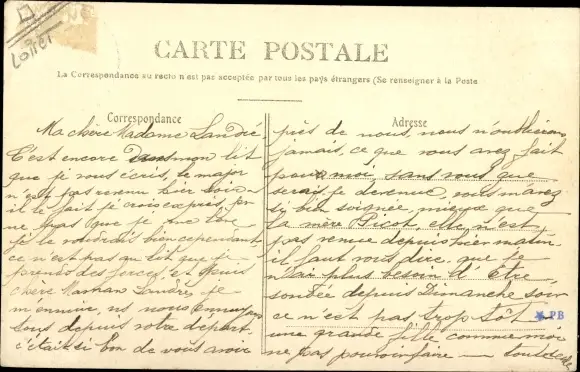 Loiret
CARTE POSTALE
La Correspondance au recto n est pas acceptée par tous les pays étrangers (Se renseigner à la Poste
Correspondance
Ma chère Madame Landré
C'est encore dans mon lit
que je vous écris, le major
n'est pas revenu hier soir
il le fait je crois exprès, pr
ne pas que je me lève
je le voudrais bien cependant
ce n'est pas au lit que je
prends des forces, et puis
chère Maman Landré, je
m'ennuie, ns nous ennuyons
tous depuis votre départ,
c'était si bon de vous avoir
Adresse
près de nous, nous n'oublierons
jamais, ce que vous avez fait
pour moi, sans vous que
serais je devenue, vous m'avez
si bien soignée, mieux que
la mère Picot, elle n'est
pas venue depuis hier matin
il faut vous dire, que je
n'ai plus besoin d'être
sondée depuis Dimanche soir
ce n'est pas trop tôt
une grande fille comme moi
ne pas pouvoir faire — toute seule
PB